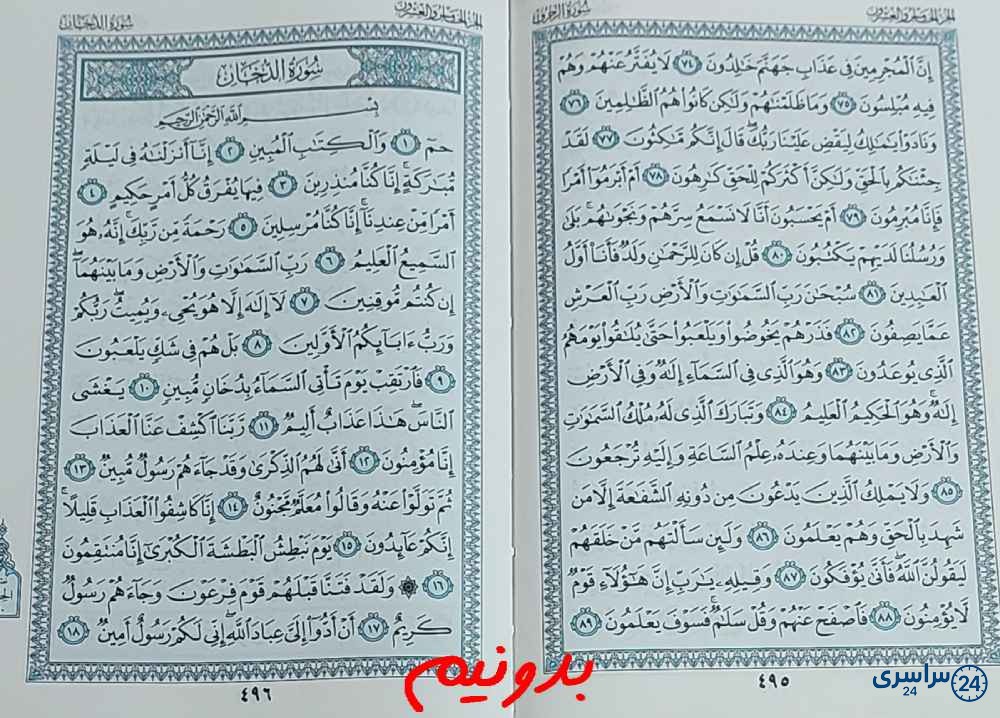 الجزء الخامس والعشرون
سورة الزخرف
إِنَّ الْمُجْرِمِينَ فِي عَذَابِ جَهَنَّمَ خَالِدُونَ ﴿٧٤﴾ لَا يُفَتَّرُ عَنْهُمْ وَهُمْ
فِيهِ مُبْلِسُونَ ﴿٧٥﴾ وَمَا ظَلَمْنَاهُمْ وَلَٰكِن كَانُوا هُمُ الظَّالِمِينَ ﴿٧٦﴾
وَنَادَوْا يَا مَالِكُ لِيَقْضِ عَلَيْنَا رَبُّكَ قَالَ إِنَّكُم مَّاكِثُونَ ﴿٧٧﴾ لَقَدْ
جِئْنَاكُم بِالْحَقِّ وَلَٰكِنَّ أَكْثَرَكُمْ لِلْحَقِّ كَارِهُونَ ﴿٧٨﴾ أَمْ أَبْرَمُوا أَمْرًا
فَإِنَّا مُبْرِمُونَ ﴿٧٩﴾ أَمْ يَحْسَبُونَ أَنَّا لَا نَسْمَعُ سِرَّهُمْ وَنَجْوَاهُم بَلَىٰ
وَرُسُلُنَا لَدَيْهِمْ يَكْتُبُونَ ﴿٨٠﴾ قُلْ إِن كَانَ لِلرَّحْمَٰنِ وَلَدٌ فَأَنَا أَوَّلُ
الْعَابِدِينَ ﴿٨١﴾ سُبْحَانَ رَبِّ السَّمَاوَاتِ وَالْأَرْضِ رَبِّ الْعَرْشِ
عَمَّا يَصِفُونَ ﴿٨٢﴾ فَذَرْهُمْ يَخُوضُوا وَيَلْعَبُوا حَتَّىٰ يُلَاقُوا يَوْمَهُمُ
الَّذِي يُوعَدُونَ ﴿٨٣﴾ وَهُوَ الَّذِي فِي السَّمَاءِ إِلَٰهٌ وَفِي الْأَرْضِ
إِلَٰهٌ وَهُوَ الْحَكِيمُ الْعَلِيمُ ﴿٨٤﴾ وَتَبَارَكَ الَّذِي لَهُ مُلْكُ السَّمَاوَاتِ
وَالْأَرْضِ وَمَا بَيْنَهُمَا وَعِندَهُ عِلْمُ السَّاعَةِ وَإِلَيْهِ تُرْجَعُونَ
﴿٨٥﴾ وَلَا يَمْلِكُ الَّذِينَ يَدْعُونَ مِن دُونِهِ الشَّفَاعَةَ إِلَّا مَن
شَهِدَ بِالْحَقِّ وَهُمْ يَعْلَمُونَ ﴿٨٦﴾ وَلَئِن سَأَلْتَهُم مَّنْ خَلَقَهُمْ
لَيَقُولُنَّ اللَّهُ فَأَنَّىٰ يُؤْفَكُونَ ﴿٨٧﴾ وَقِيلِهِ يَا رَبِّ إِنَّ هَٰؤُلَاءِ قَوْمٌ
لَّا يُؤْمِنُونَ ﴿٨٨﴾ فَاصْفَحْ عَنْهُمْ وَقُلْ سَلَامٌ فَسَوْفَ يَعْلَمُونَ ﴿٨٩﴾
٤٩٥
الجزء الخامس والعشرون
سورة الدخان
سُورَةُ الدُّخَانِ
بِسْمِ اللَّهِ الرَّحْمَٰنِ الرَّحِيمِ
حم ﴿١﴾ وَالْكِتَابِ الْمُبِينِ ﴿٢﴾ إِنَّا أَنزَلْنَاهُ فِي لَيْلَةٍ
مُّبَارَكَةٍ إِنَّا كُنَّا مُنذِرِينَ ﴿٣﴾ فِيهَا يُفْرَقُ كُلُّ أَمْرٍ حَكِيمٍ ﴿٤﴾
أَمْرًا مِّنْ عِندِنَا إِنَّا كُنَّا مُرْسِلِينَ ﴿٥﴾ رَحْمَةً مِّن رَّبِّكَ إِنَّهُ هُوَ
السَّمِيعُ الْعَلِيمُ ﴿٦﴾ رَبِّ السَّمَاوَاتِ وَالْأَرْضِ وَمَا بَيْنَهُمَا
إِن كُنتُم مُّوقِنِينَ ﴿٧﴾ لَا إِلَٰهَ إِلَّا هُوَ يُحْيِي وَيُمِيتُ رَبُّكُمْ
وَرَبُّ آبَائِكُمُ الْأَوَّلِينَ ﴿٨﴾ بَلْ هُمْ فِي شَكٍّ يَلْعَبُونَ
﴿٩﴾ فَارْتَقِبْ يَوْمَ تَأْتِي السَّمَاءُ بِدُخَانٍ مُّبِينٍ ﴿١٠﴾ يَغْشَى
النَّاسَ هَٰذَا عَذَابٌ أَلِيمٌ ﴿١١﴾ رَّبَّنَا اكْشِفْ عَنَّا الْعَذَابَ
إِنَّا مُؤْمِنُونَ ﴿١٢﴾ أَنَّىٰ لَهُمُ الذِّكْرَىٰ وَقَدْ جَاءَهُمْ رَسُولٌ مُّبِينٌ ﴿١٣﴾
ثُمَّ تَوَلَّوْا عَنْهُ وَقَالُوا مُعَلَّمٌ مَّجْنُونٌ ﴿١٤﴾ إِنَّا كَاشِفُوا الْعَذَابِ قَلِيلًا
إِنَّكُمْ عَائِدُونَ ﴿١٥﴾ يَوْمَ نَبْطِشُ الْبَطْشَةَ الْكُبْرَىٰ إِنَّا مُنتَقِمُونَ
﴿١٦﴾ ۞ وَلَقَدْ فَتَنَّا قَبْلَهُمْ قَوْمَ فِرْعَوْنَ وَجَاءَهُمْ رَسُولٌ
كَرِيمٌ ﴿١٧﴾ أَنْ أَدُّوا إِلَيَّ عِبَادَ اللَّهِ إِنِّي لَكُمْ رَسُولٌ أَمِينٌ ﴿١٨﴾
٤٩٦
بدونیم
سراسری 24
24